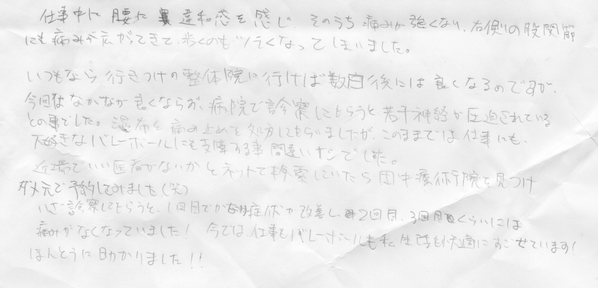 仕事中に腰に違和感を感じ そのうち痛みが強くなり、右側の股関節
にも痛みが広がってきて、歩くのもツラくなってしまいました。
いつもなら行きつけの整体院に行けば数日後には良くなるのですが、
今回はなかなか良くならず、病院で診察してもらうと若干神経が圧迫されている
との事でした。湿布と痛み止めを処方してもらいましたが、このままでは仕事にも、
大好きなバレーボールにも支障する事間違いナシでした。
近場でいい医者がないかとネットで検索していたら田中療術院を見つけ
ダメ元で予約してみました(笑)
いざ診察してもらうと、1回目でかなり症状が改善し 2回目、3回目くらいには
痛みがなくなっていました! 今では仕事もバレーボールも私生活も快適にすごせています!
ほんとうに助かりました!!